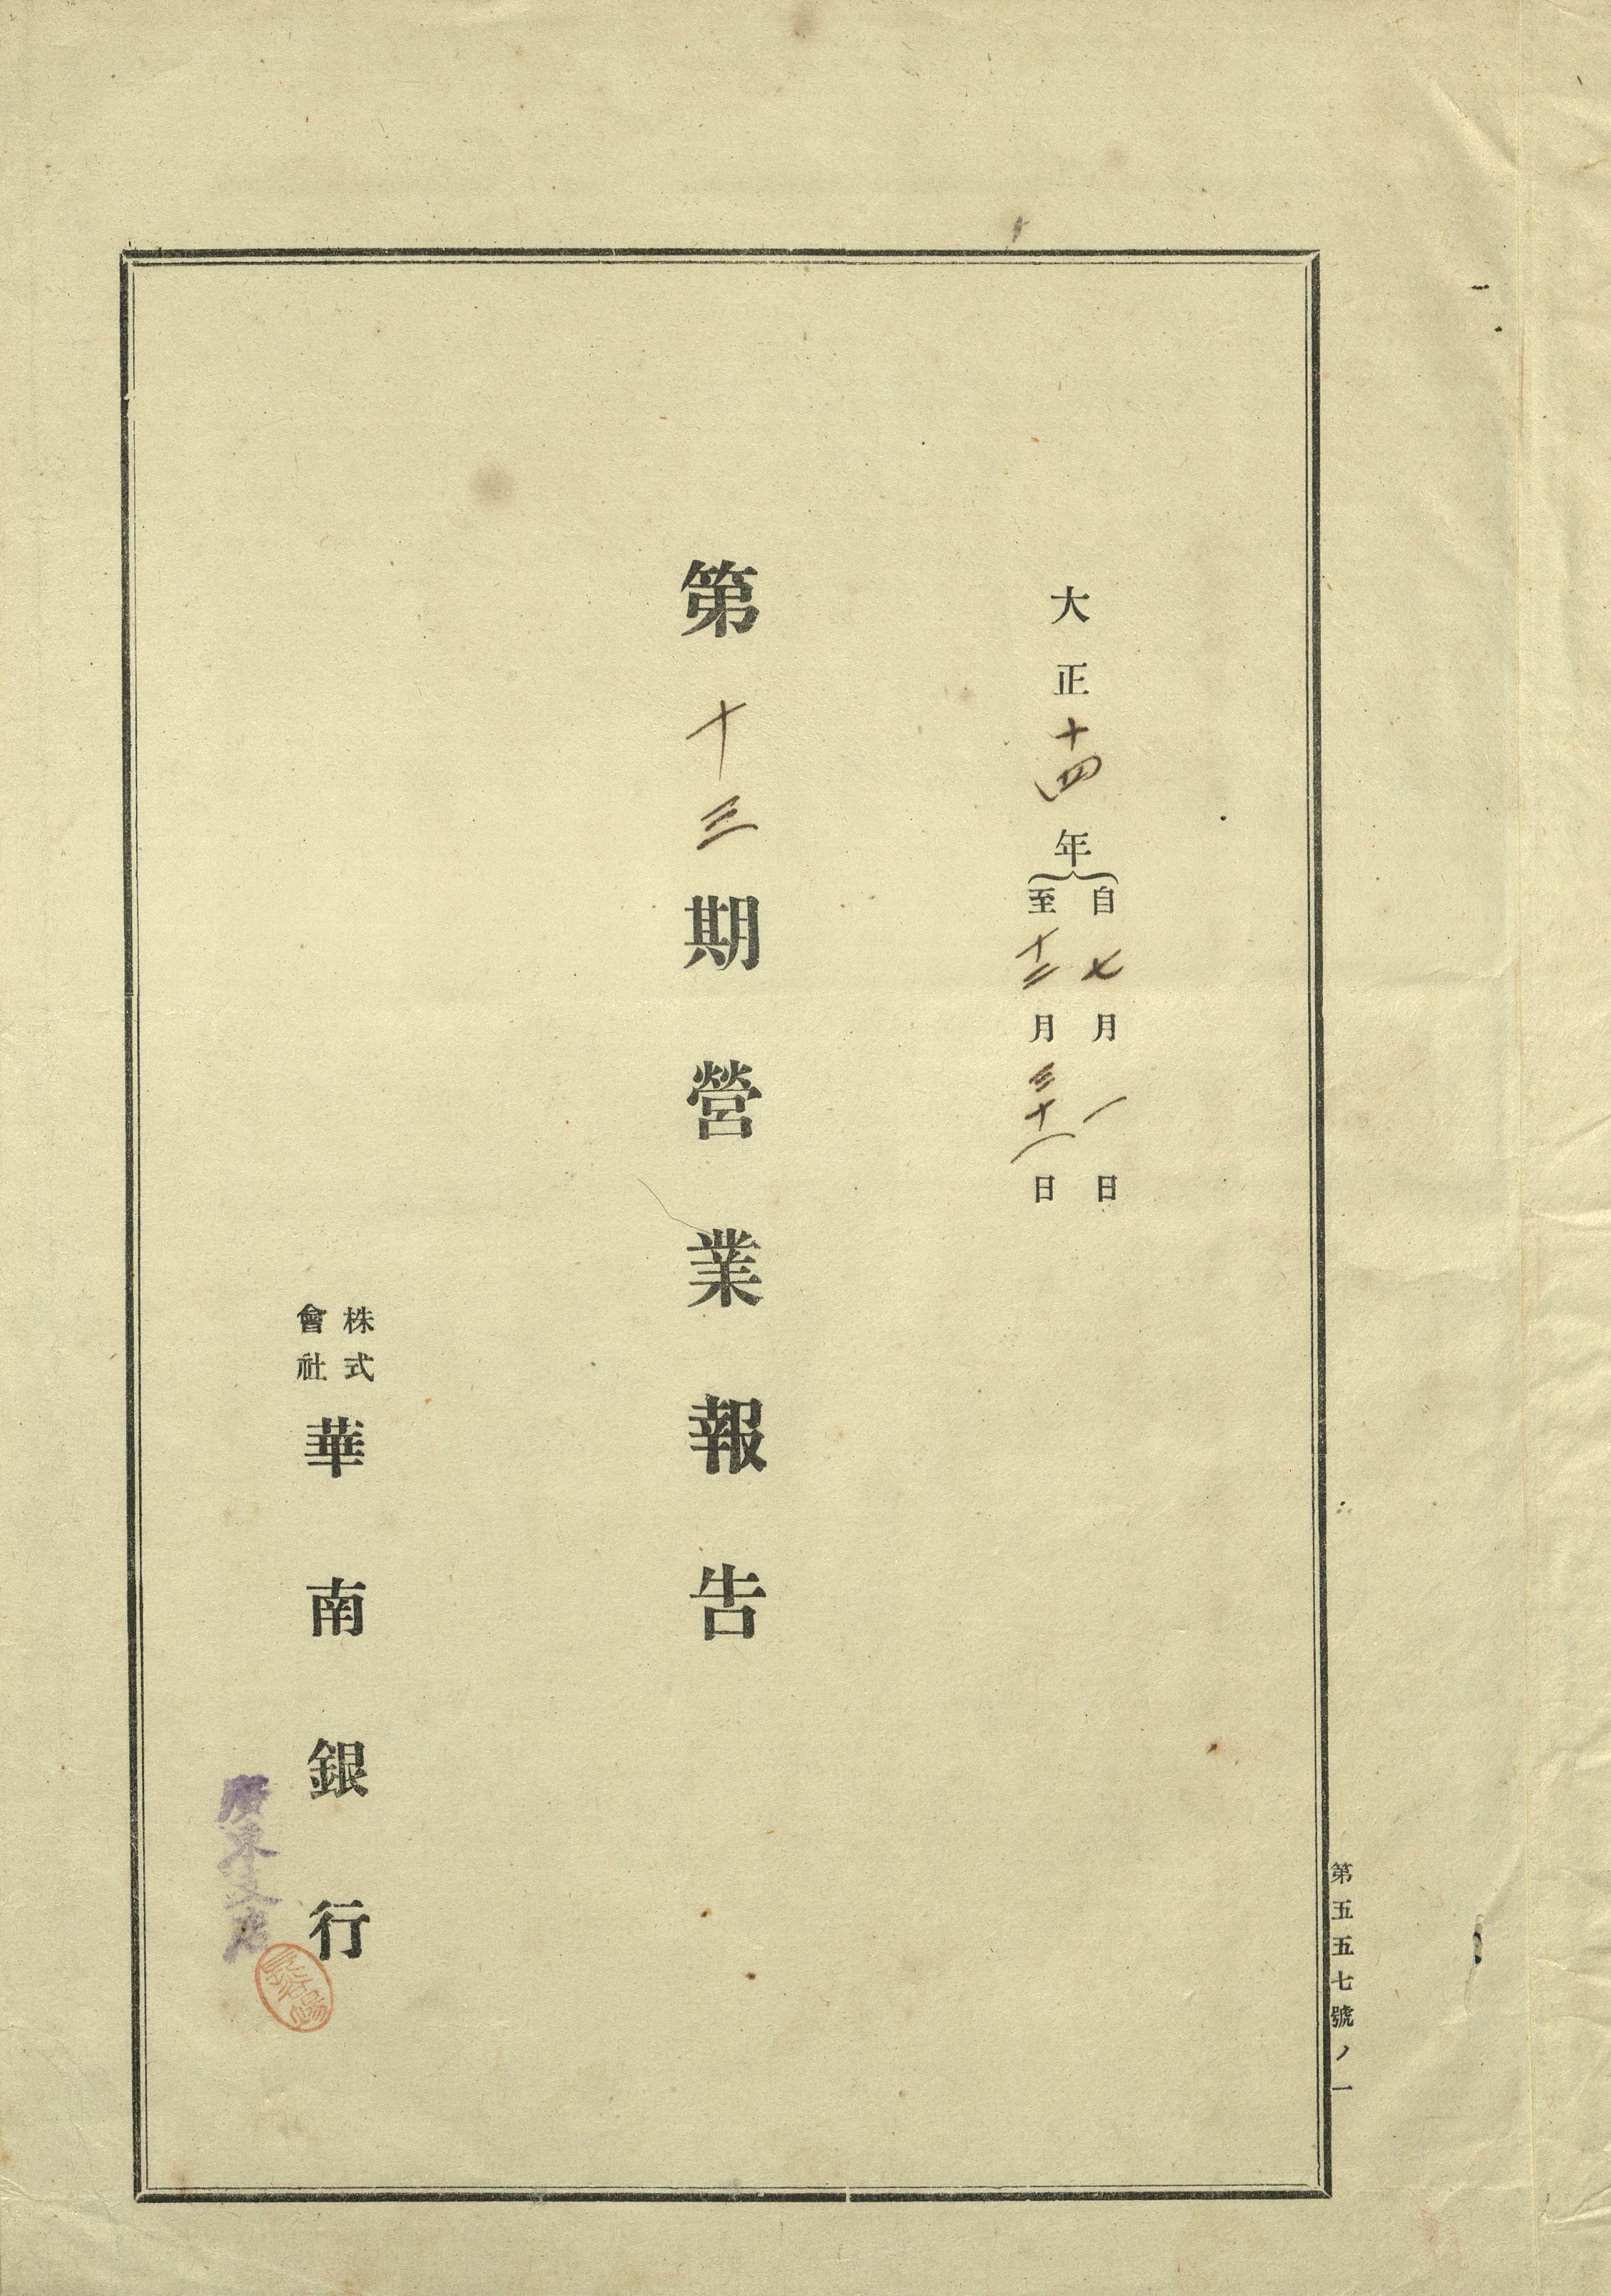 大正十四年
自七月一日
至十二月三十一日
第十三期營業報告
株式
會社
華南銀行
廣東支店
第五五七號ノ一